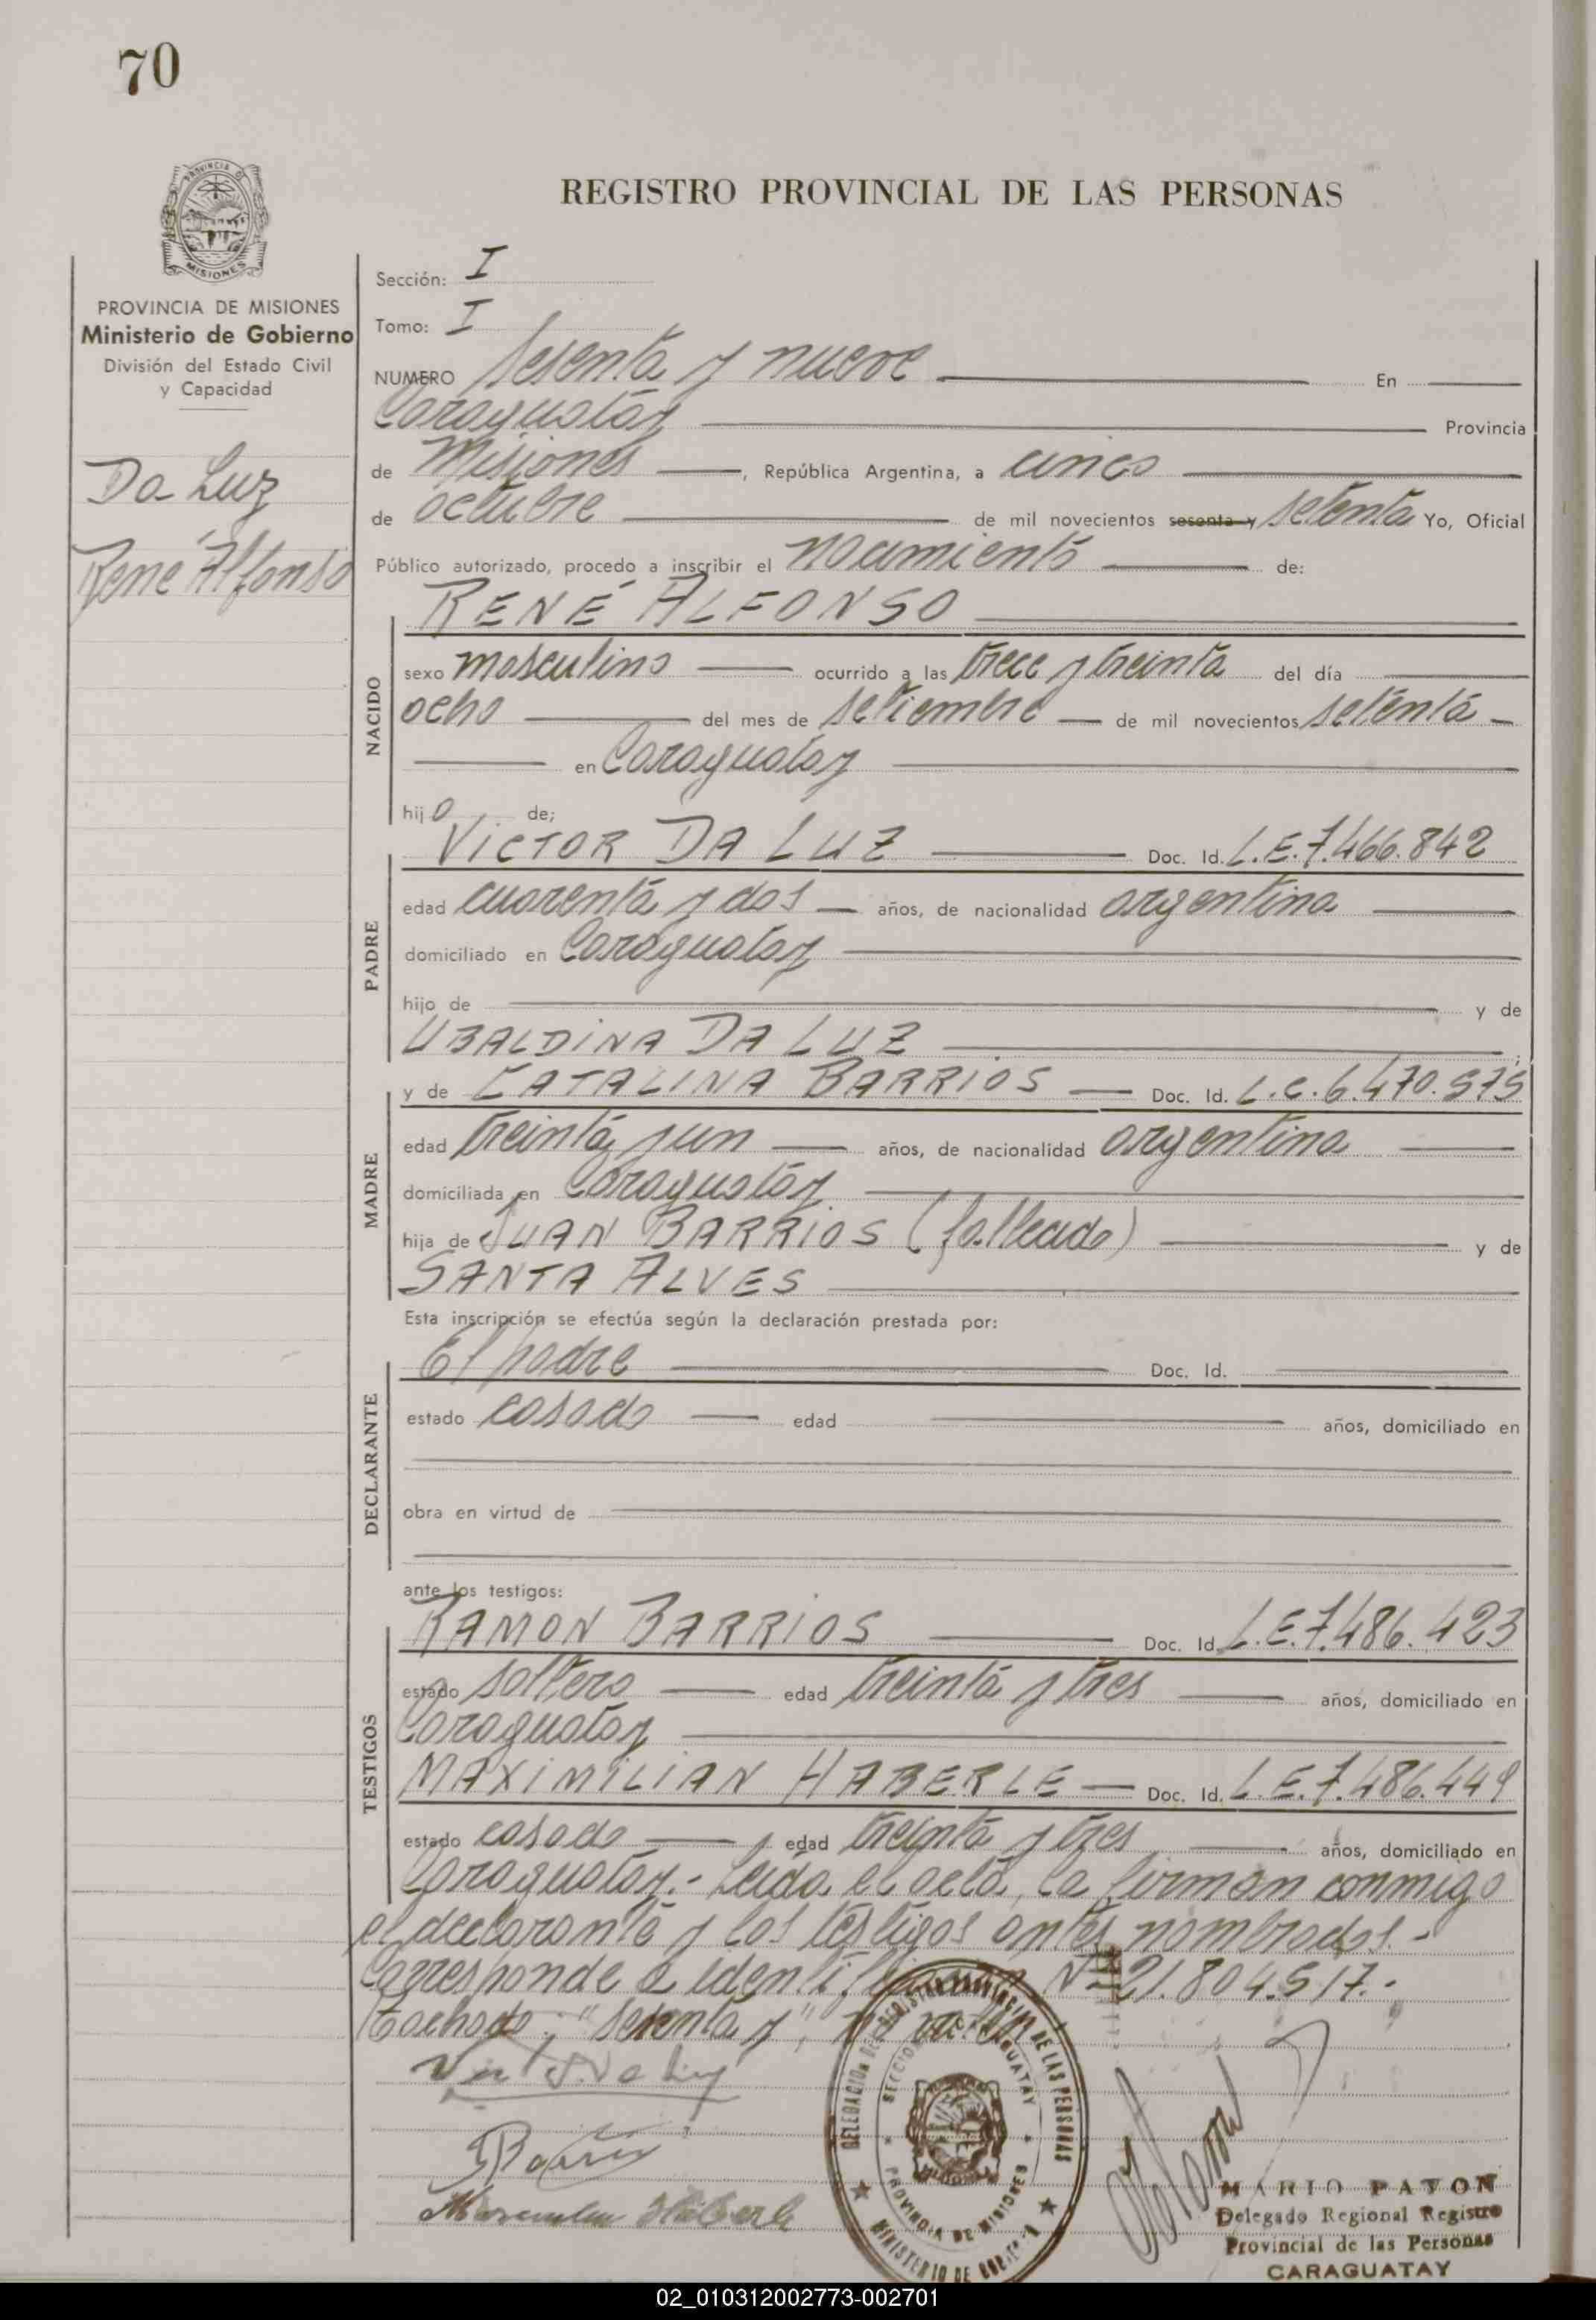 70
REGISTRO PROVINCIAL DE LAS PERSONAS
PROVINCIA DE MISIONES
Ministerio de Gobierno
División del Estado Civil
y Capacidad
Da Luz
René Alfonso
Sección: I
Tomo: I
NUMERO Sesenta y nueve En
Caraguatay Provincia
de Misiones, República Argentina, a cinco
de octubre de mil novecientos sesenta y setenta Yo, Oficial
Público autorizado, procedo a inscribir el nacimiento de:
NACIDO
RENÉ ALFONSO
sexo masculino ocurrido a las trece y treinta del día
ocho del mes de setiembre de mil novecientos setenta
en Caraguatay
hijo de;
PADRE
VICTOR DA LUZ Doc. Id. L.E.7.466.842
edad cuarenta y dos años, de nacionalidad argentina
domiciliado en Caraguatay
hijo de y de
UBALDINA DA LUZ ;
MADRE
y de CATALINA BARRIOS Doc. Id. L.C.6.470.575
edad treinta y un años, de nacionalidad argentina
domiciliada en Caraguatay
hija de JUAN BARRIOS (fallecido) y de
SANTA ALVES
Esta inscripción se efectúa según la declaración prestada por:
DECLARANTE
El padre Doc. Id.
estado casado edad años, domiciliado en
obra en virtud de
ante los testigos:
TESTIGOS
RAMON BARRIOS Doc. Id. L.E.7.486.423
estado soltero edad treinta y tres años, domiciliado en
Caraguatay
MAXIMILIAN HABERLE Doc. Id. L.E.7.486.449
estado casado edad treinta y tres años, domiciliado en
Caraguatay.- Leída el acta, la firman conmigo
el declarante y los testigos antes nombrados.-
Corresponde a identificación Nº 21.804.517.-
Tachado: "sesenta y", no vale.
DELEGACION DEL REGISTRO PROVINCIAL DE LAS PERSONAS
SECCION CARAGUATAY
PROVINCIA DE MISIONES
MINISTERIO DE GOBIERNO
MARIO PAYON
Delegado Regional Registro
Provincial de las Personas
CARAGUATAY
02_010312002773-002701